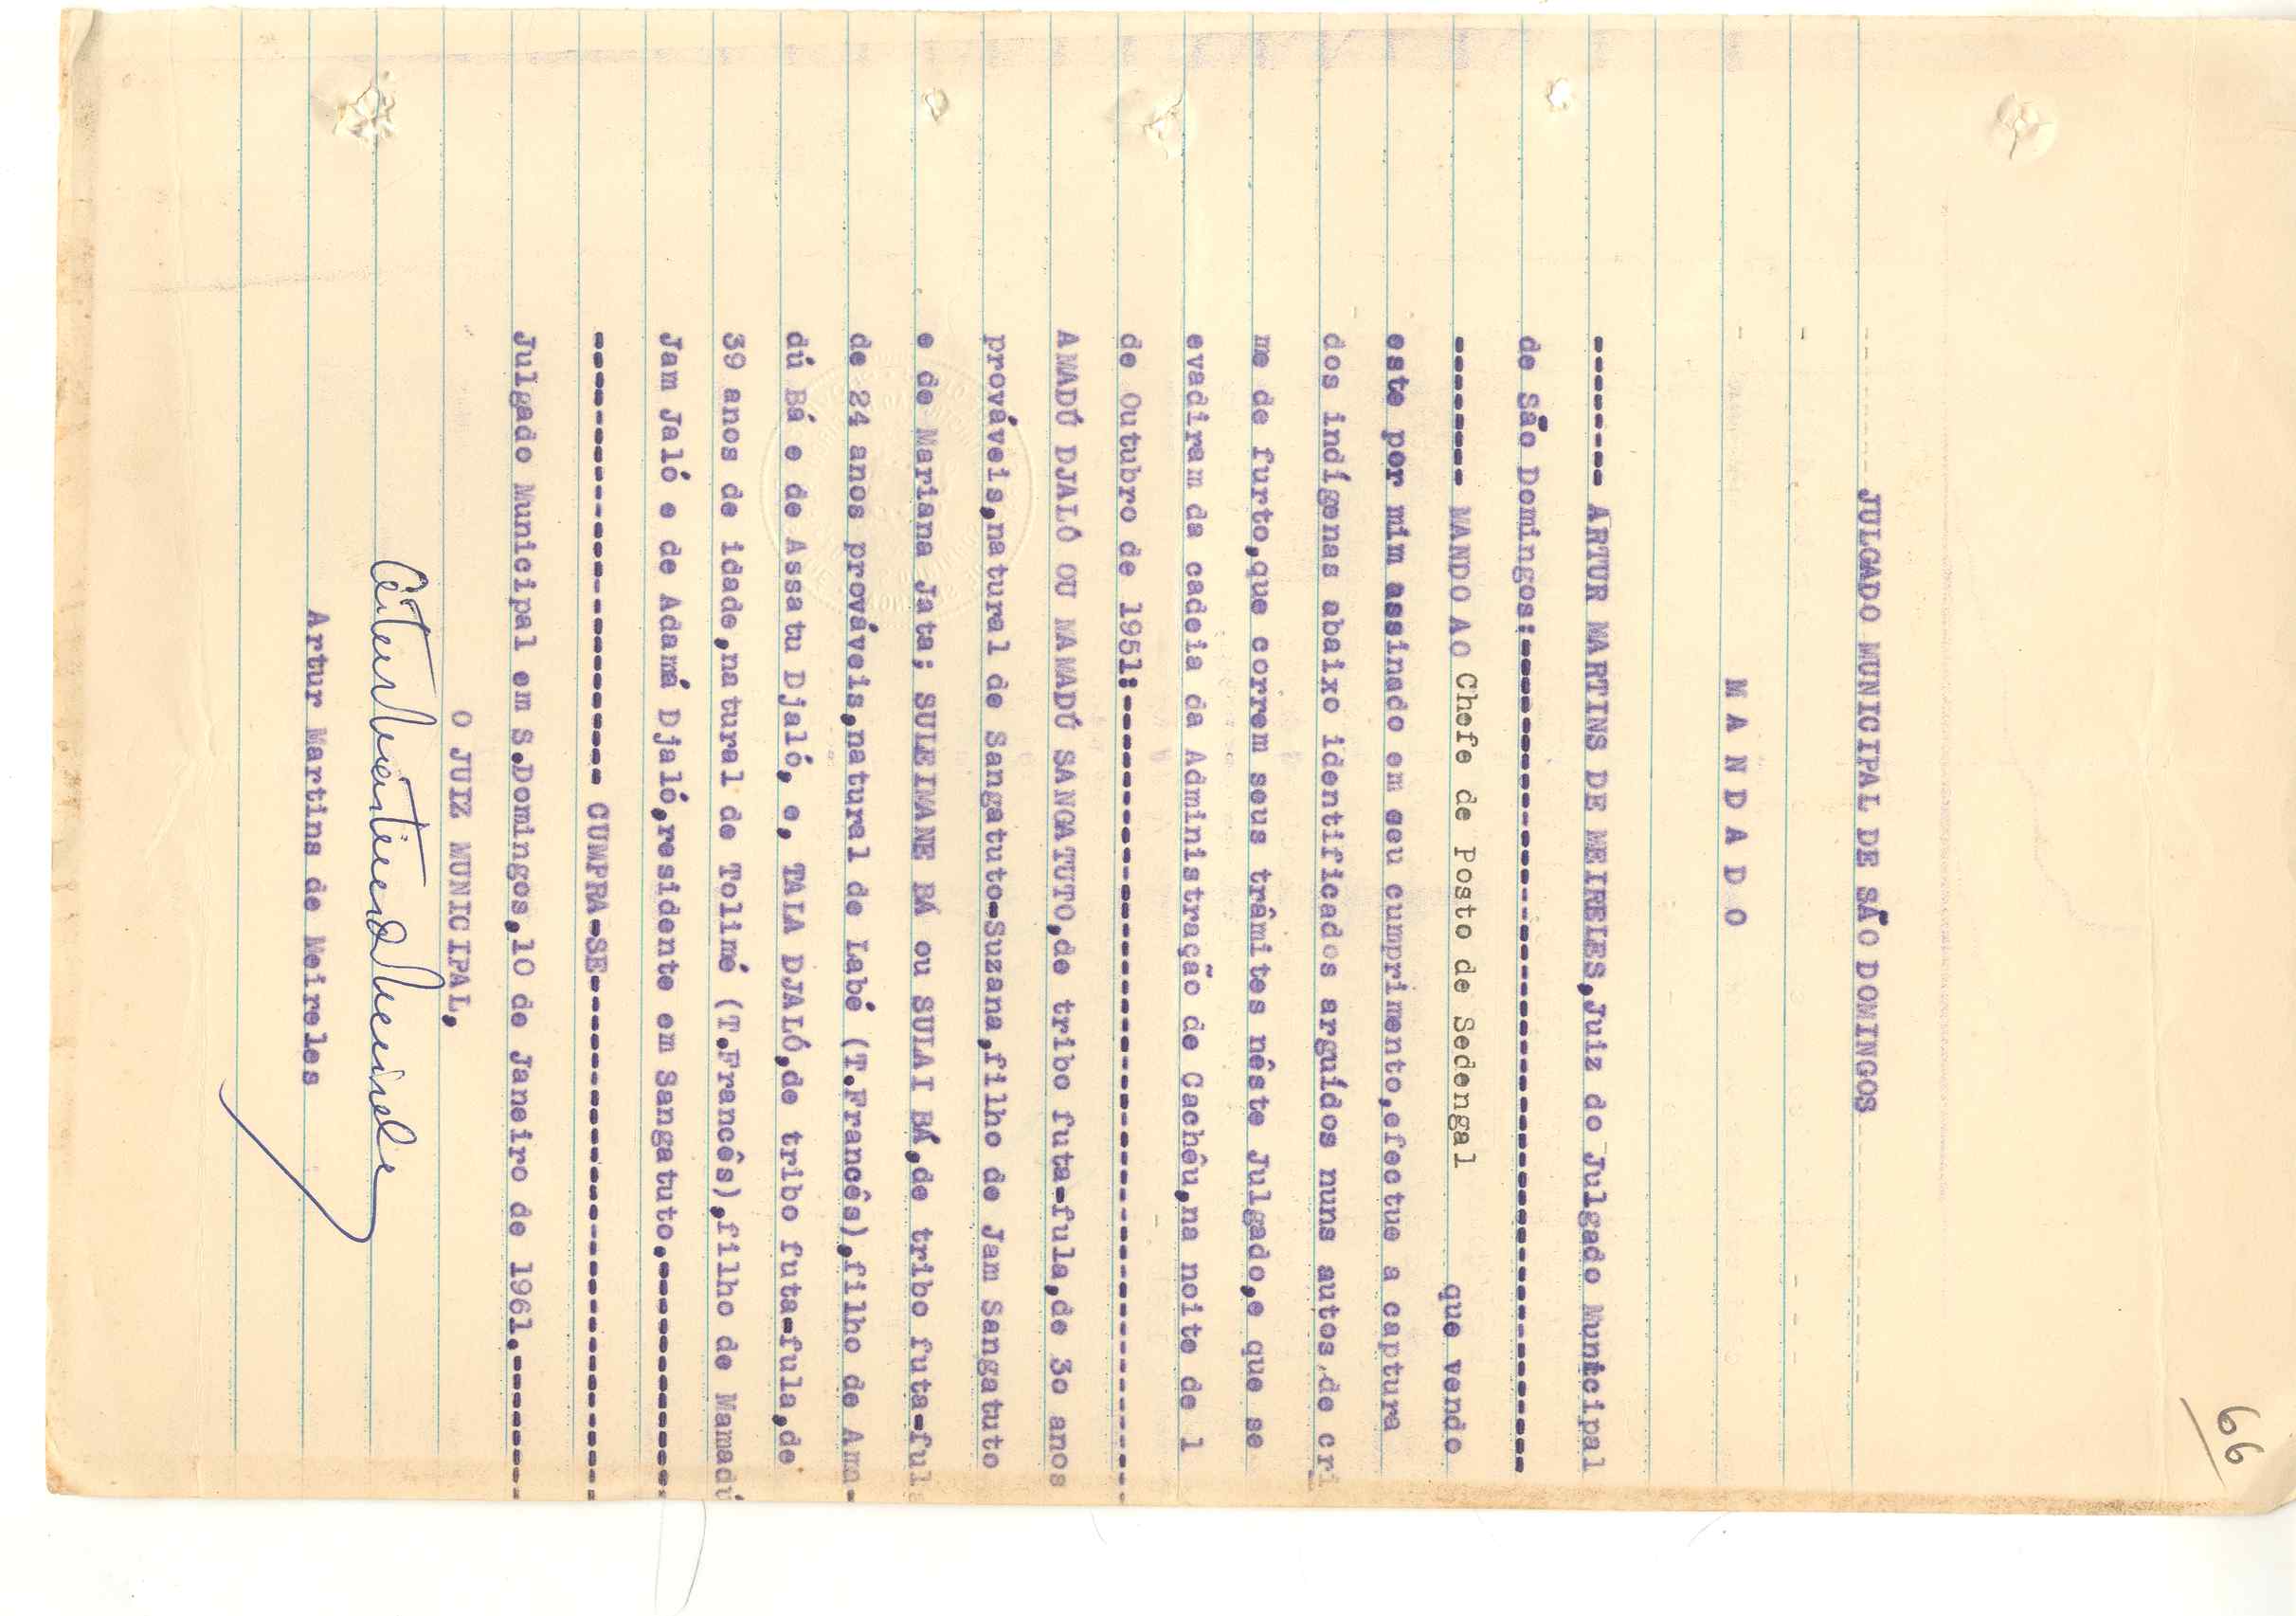 66
JULGADO MUNICIPAL DE SÃO DOMINGOS
M A N D A D O
-------- ARTUR MARTINS DE MEIRELES,Juiz do Julgado Municipal
de São Domingos:--------------------------------------------
-------- MANDO AO Chefe de Posto de Sedengal que vendo
este por mim assinado em seu cumprimento,efectue a captura
dos indígenas abaixo identificados arguídos nuns autos de cri
me de furto,que correm seus trâmites nêste Julgado,e que se
evadiram da cadeia da Administração de Cachêu,na noite de 1
de Outubro de 1951:-----------------------------------------
AMADÚ DJALÓ OU MAMADÚ SANGATUTO,de tribo futa-fula,de 30 anos
prováveis,natural de Sangatuto-Suzana,filho de Jam Sangatuto
e de Mariana Jata; SULEIMANE BÁ ou SULAI BÁ,de tribo futa-fula
de 24 anos prováveis,natural de Labé (T.Francês),filho de Ama-
dú Bá e de Assatu Djaló, e, TALA DJALÓ,de tribo futa-fula,de
39 anos de idade,natural de Tolimé (T.Francês),filho de Mamadú
Jam Jaló e de Adamá Djaló,residente em Sangatuto.-------------
------------------------ CUMPRA-SE----------------------------
Julgado Municipal em S.Domingos,10 de Janeiro de 1961.--------
O JUIZ MUNICIPAL,
Artur Martins de Meireles
Artur Martins de Meireles